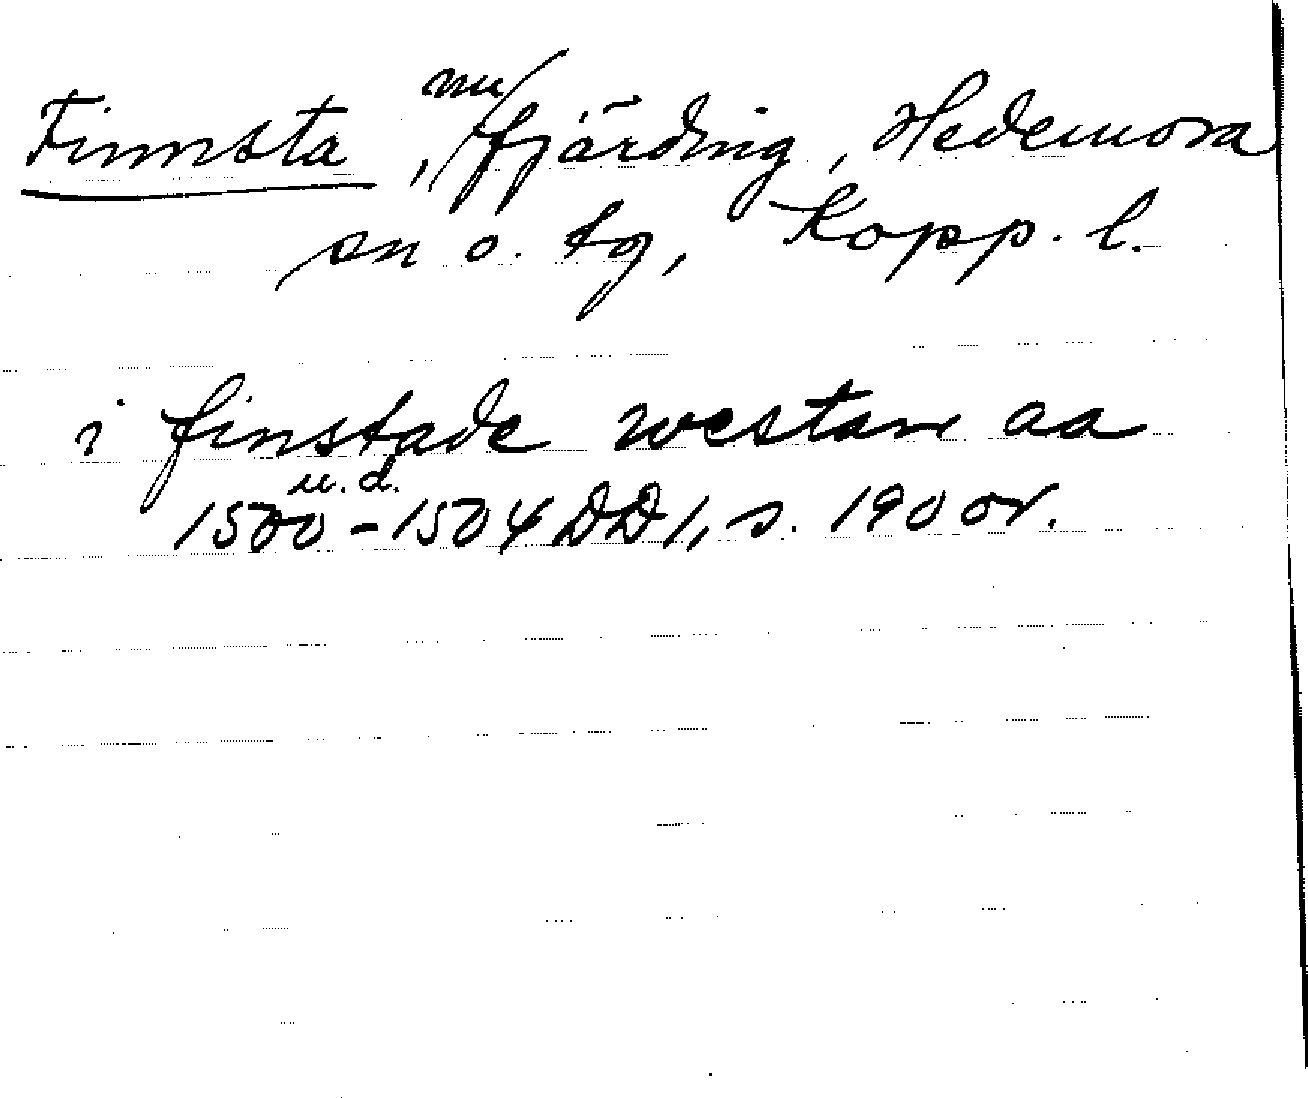 Finnsta, nu/fjärding, Hedemora
sn o. tg, Kopp. l.
i finstade westan aa
u. d.
1500-1504 DD 1, s. 190 or.